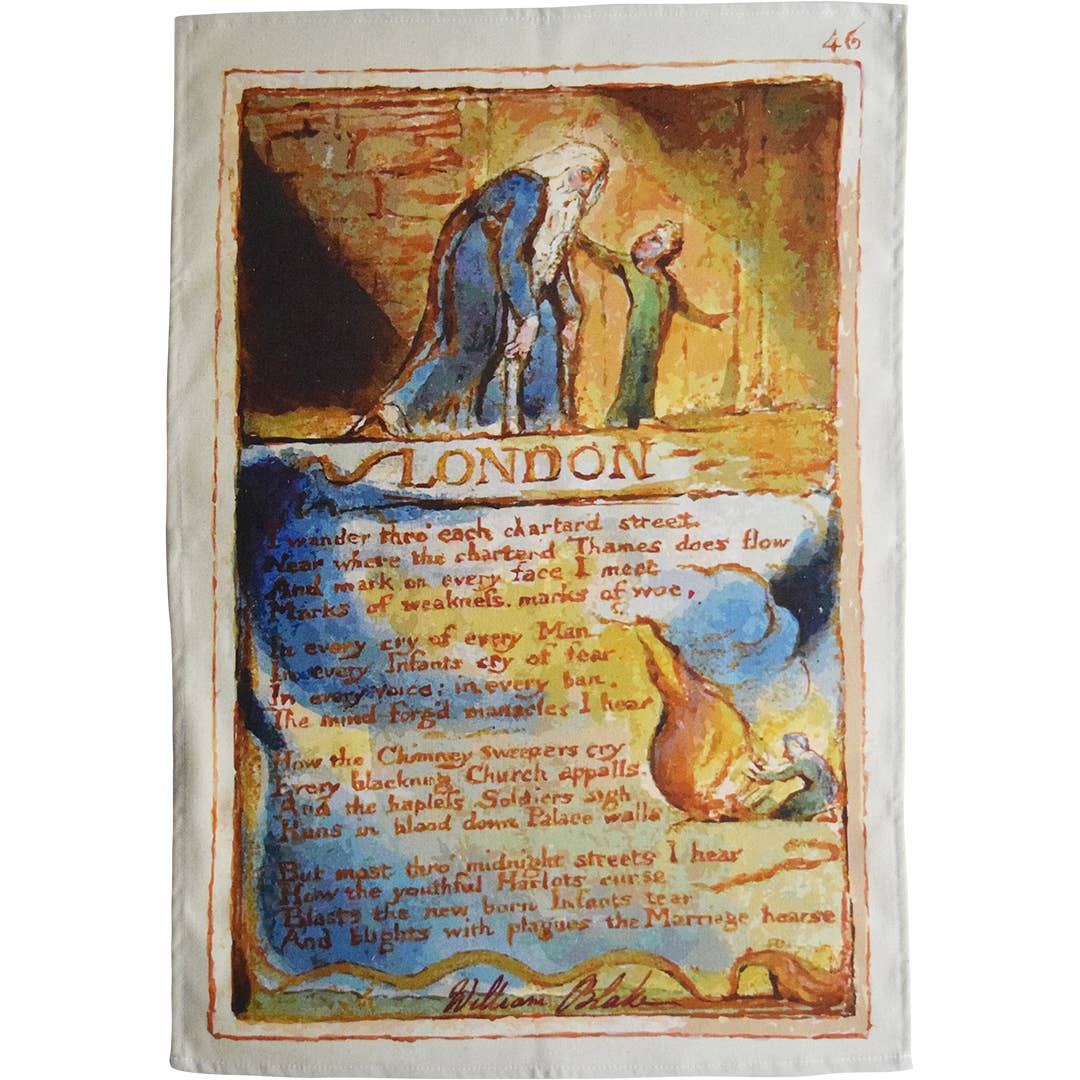 46
LONDON
I wander thro' each charterd street.
Near where the charterd Thames does flow
And mark on every face I meet
Marks of weakneſs, marks of woe,
In every cry of every Man
In every Infants cry of fear
In every voice; in every ban.
The mind forg'd manacles I hear
How the Chimney sweepers cry
Every blackning Church appalls.
And the hapleſs Soldiers sigh
Runs in blood down Palace walls
But most thro' midnight streets I hear
How the youthful Harlots curse
Blasts the new born Infants tear
And blights with plagues the Marriage hearse
William Blake